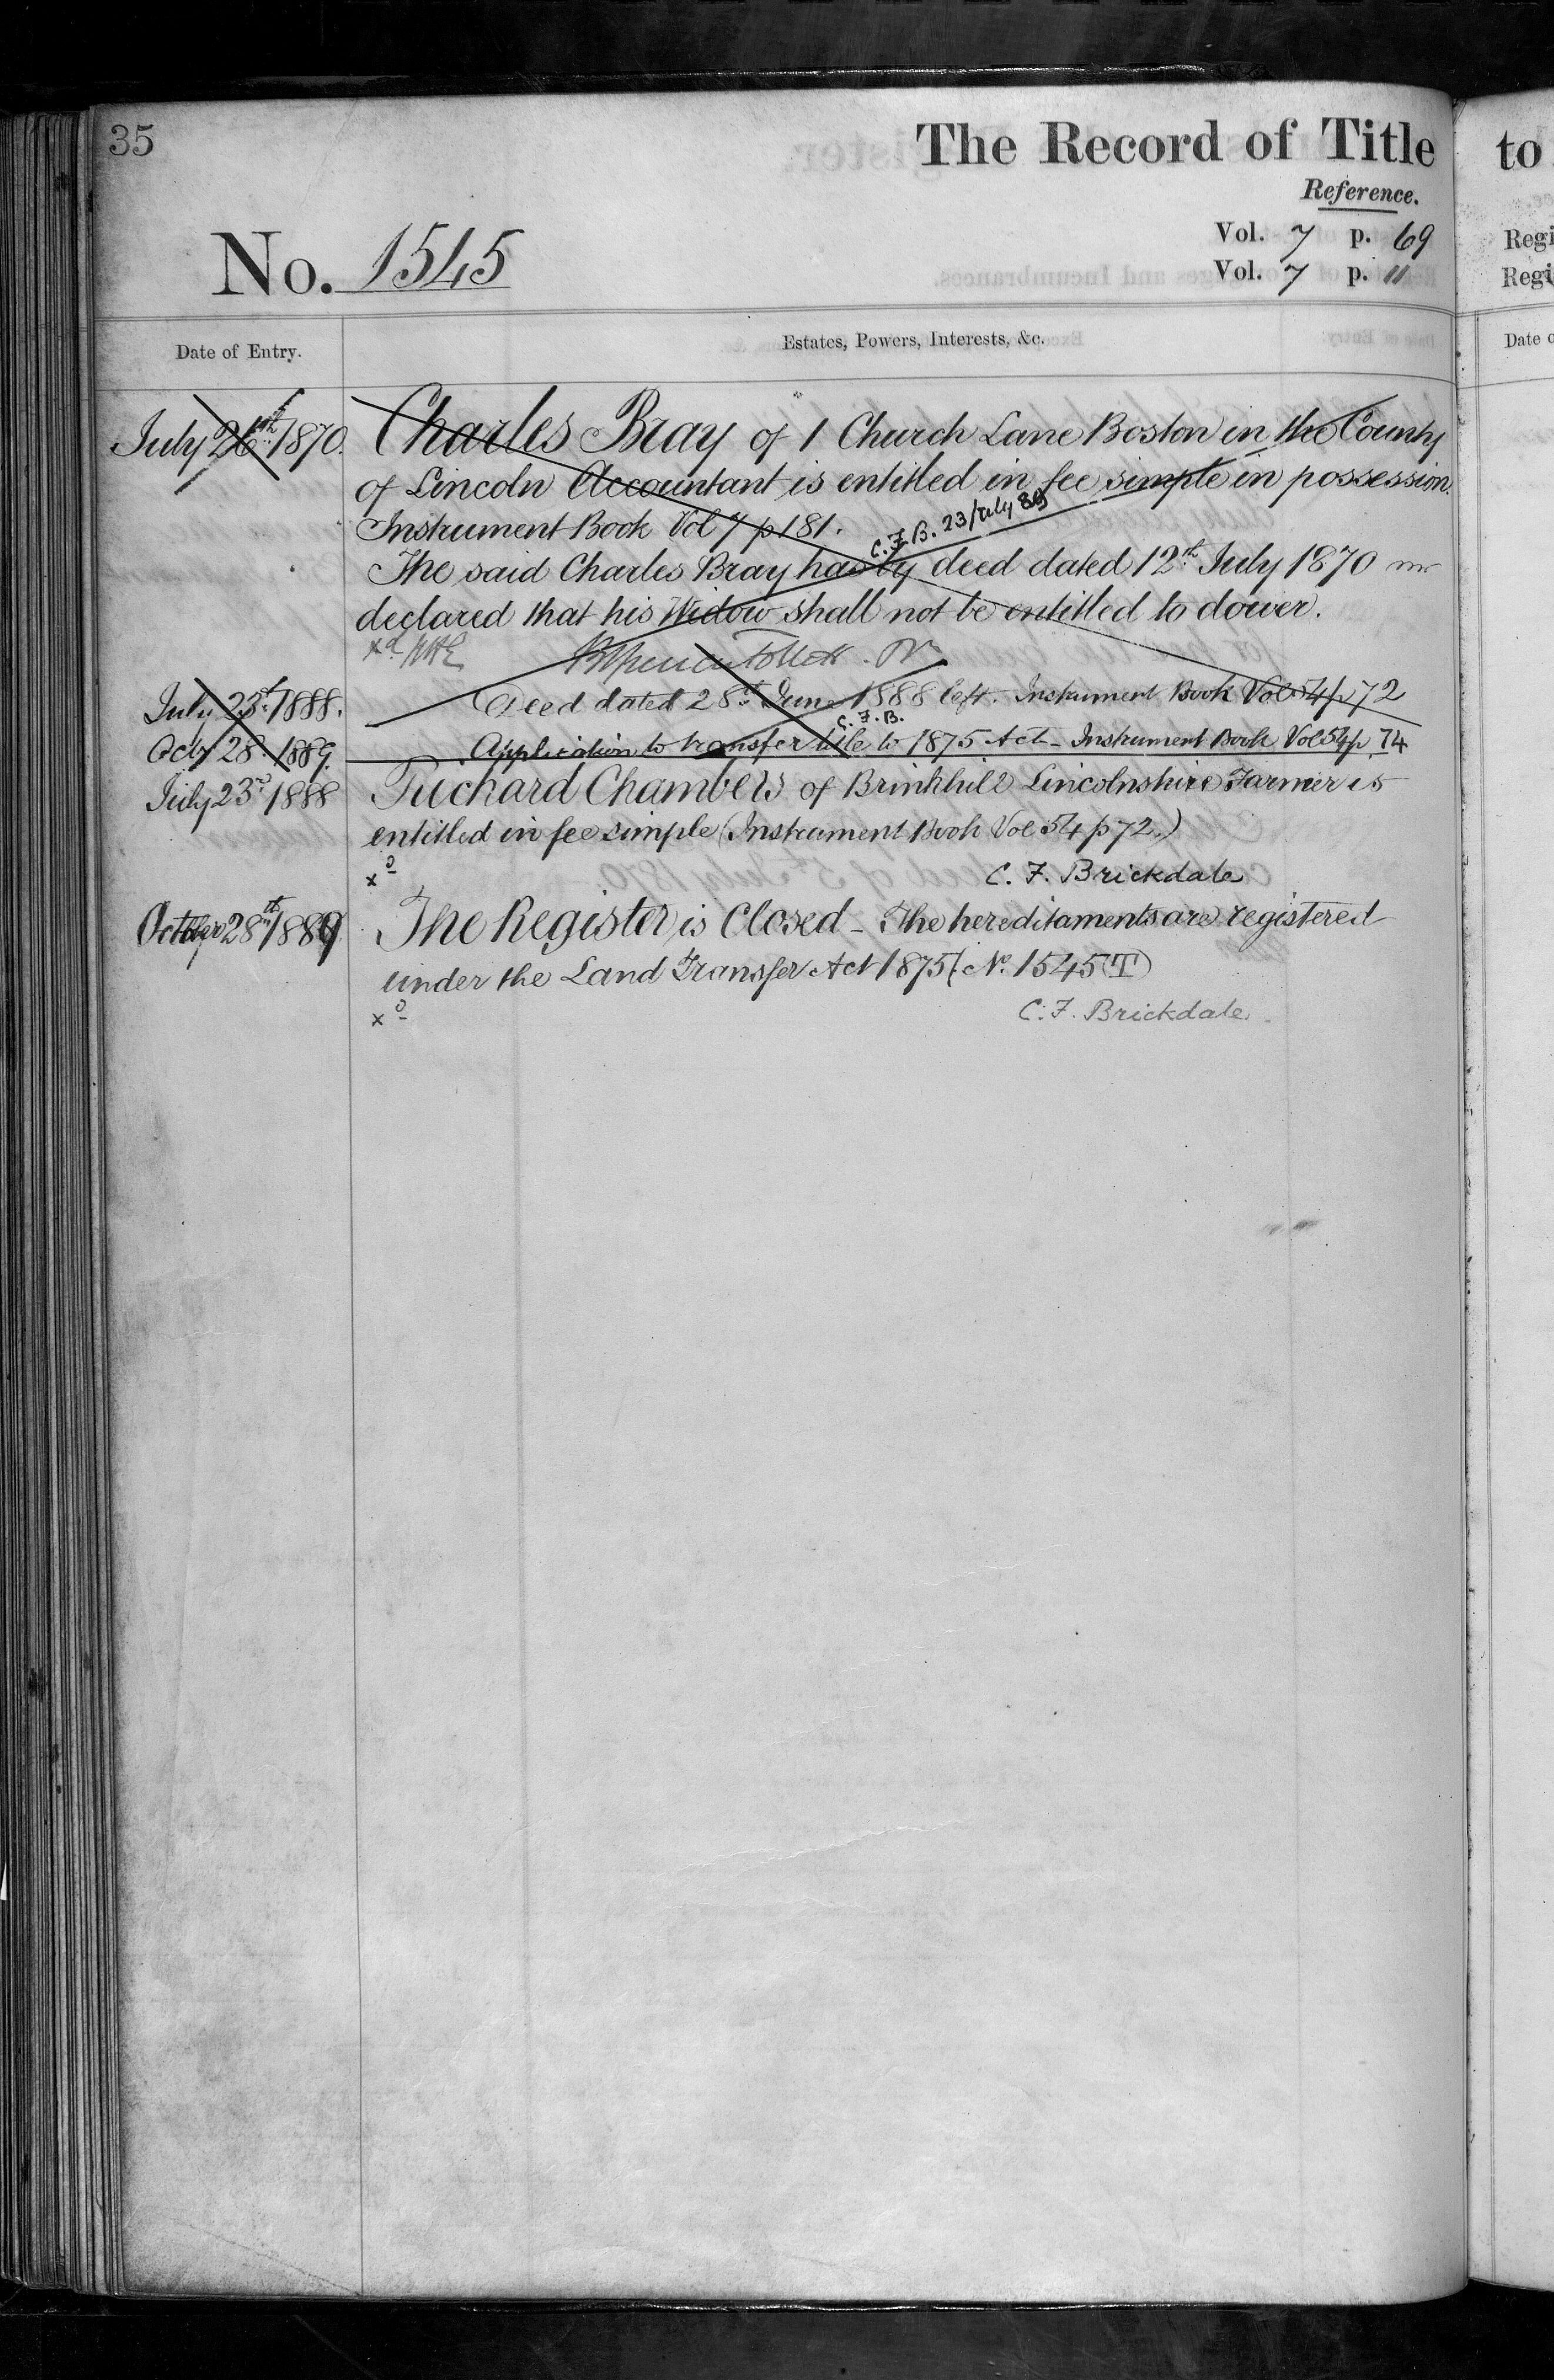 35
The Record of Title
to
Reference.
No. 1545
Vol. 7 p. 69
Vol. 7 p. 11
Regi
Regi
Date of Entry.
Estates, Powers, Interests, &c.
Date o
July 26th 1870. Charles Bray of 1 Church Lane Boston in the County
of Lincoln Accountant is entitled in fee simple in possession.
Instrument Book Vol 7 p 181.
C.F.B. 23/July 89
The said Charles Bray has by deed dated 12th July 1870
declared that his Widow shall not be entitled to dower.
July 23rd 1888. Deed dated 28th June 1888 left. Instrument Book Vol 54 p 72
C.F.B.
Octr 28. 1889. Application to transfer title to 1875 Act - Instrument Book Vol 54 p. 74
July 23rd 1888 Richard Chambers of Brinkhill Lincolnshire Farmer is
entitled in fee simple (Instrument Book Vol 54 p 72.)
C. F. Brickdale
October 28th 1889 The Register is Closed - The hereditaments are registered
under the Land Transfer Act 1875 (No. 1545 (T)
C. F. Brickdale.